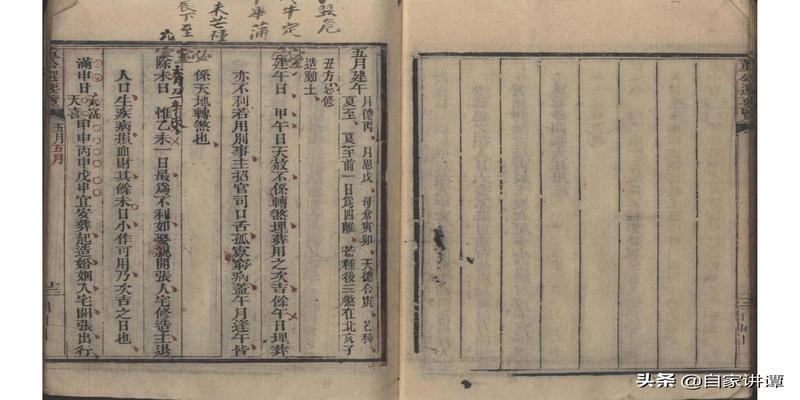 五月建午 月德丙、月恩戊、母倉寅卯、天德合寅、芒種、
夏至、夏至前一日爲四離、芒種後三煞在北亥子
丑方忌修
造動土
建午日 甲午日天赦不係轉煞埋葬用之次吉餘午日埋葬
亦不利若用別事主招官司口舌孤寡窮病蓋午月逢午皆
係天地轉煞也
除未日 惟乙未一日最爲不利如娶親開張入宅修造主退
人口生疾病損血財其餘未日小作可用乃次吉之日也
滿申日 天富 天喜 甲申丙申戊申宜安葬起造婚姻入宅開張出行
五月五月
十二
頭条 @自家讲谭